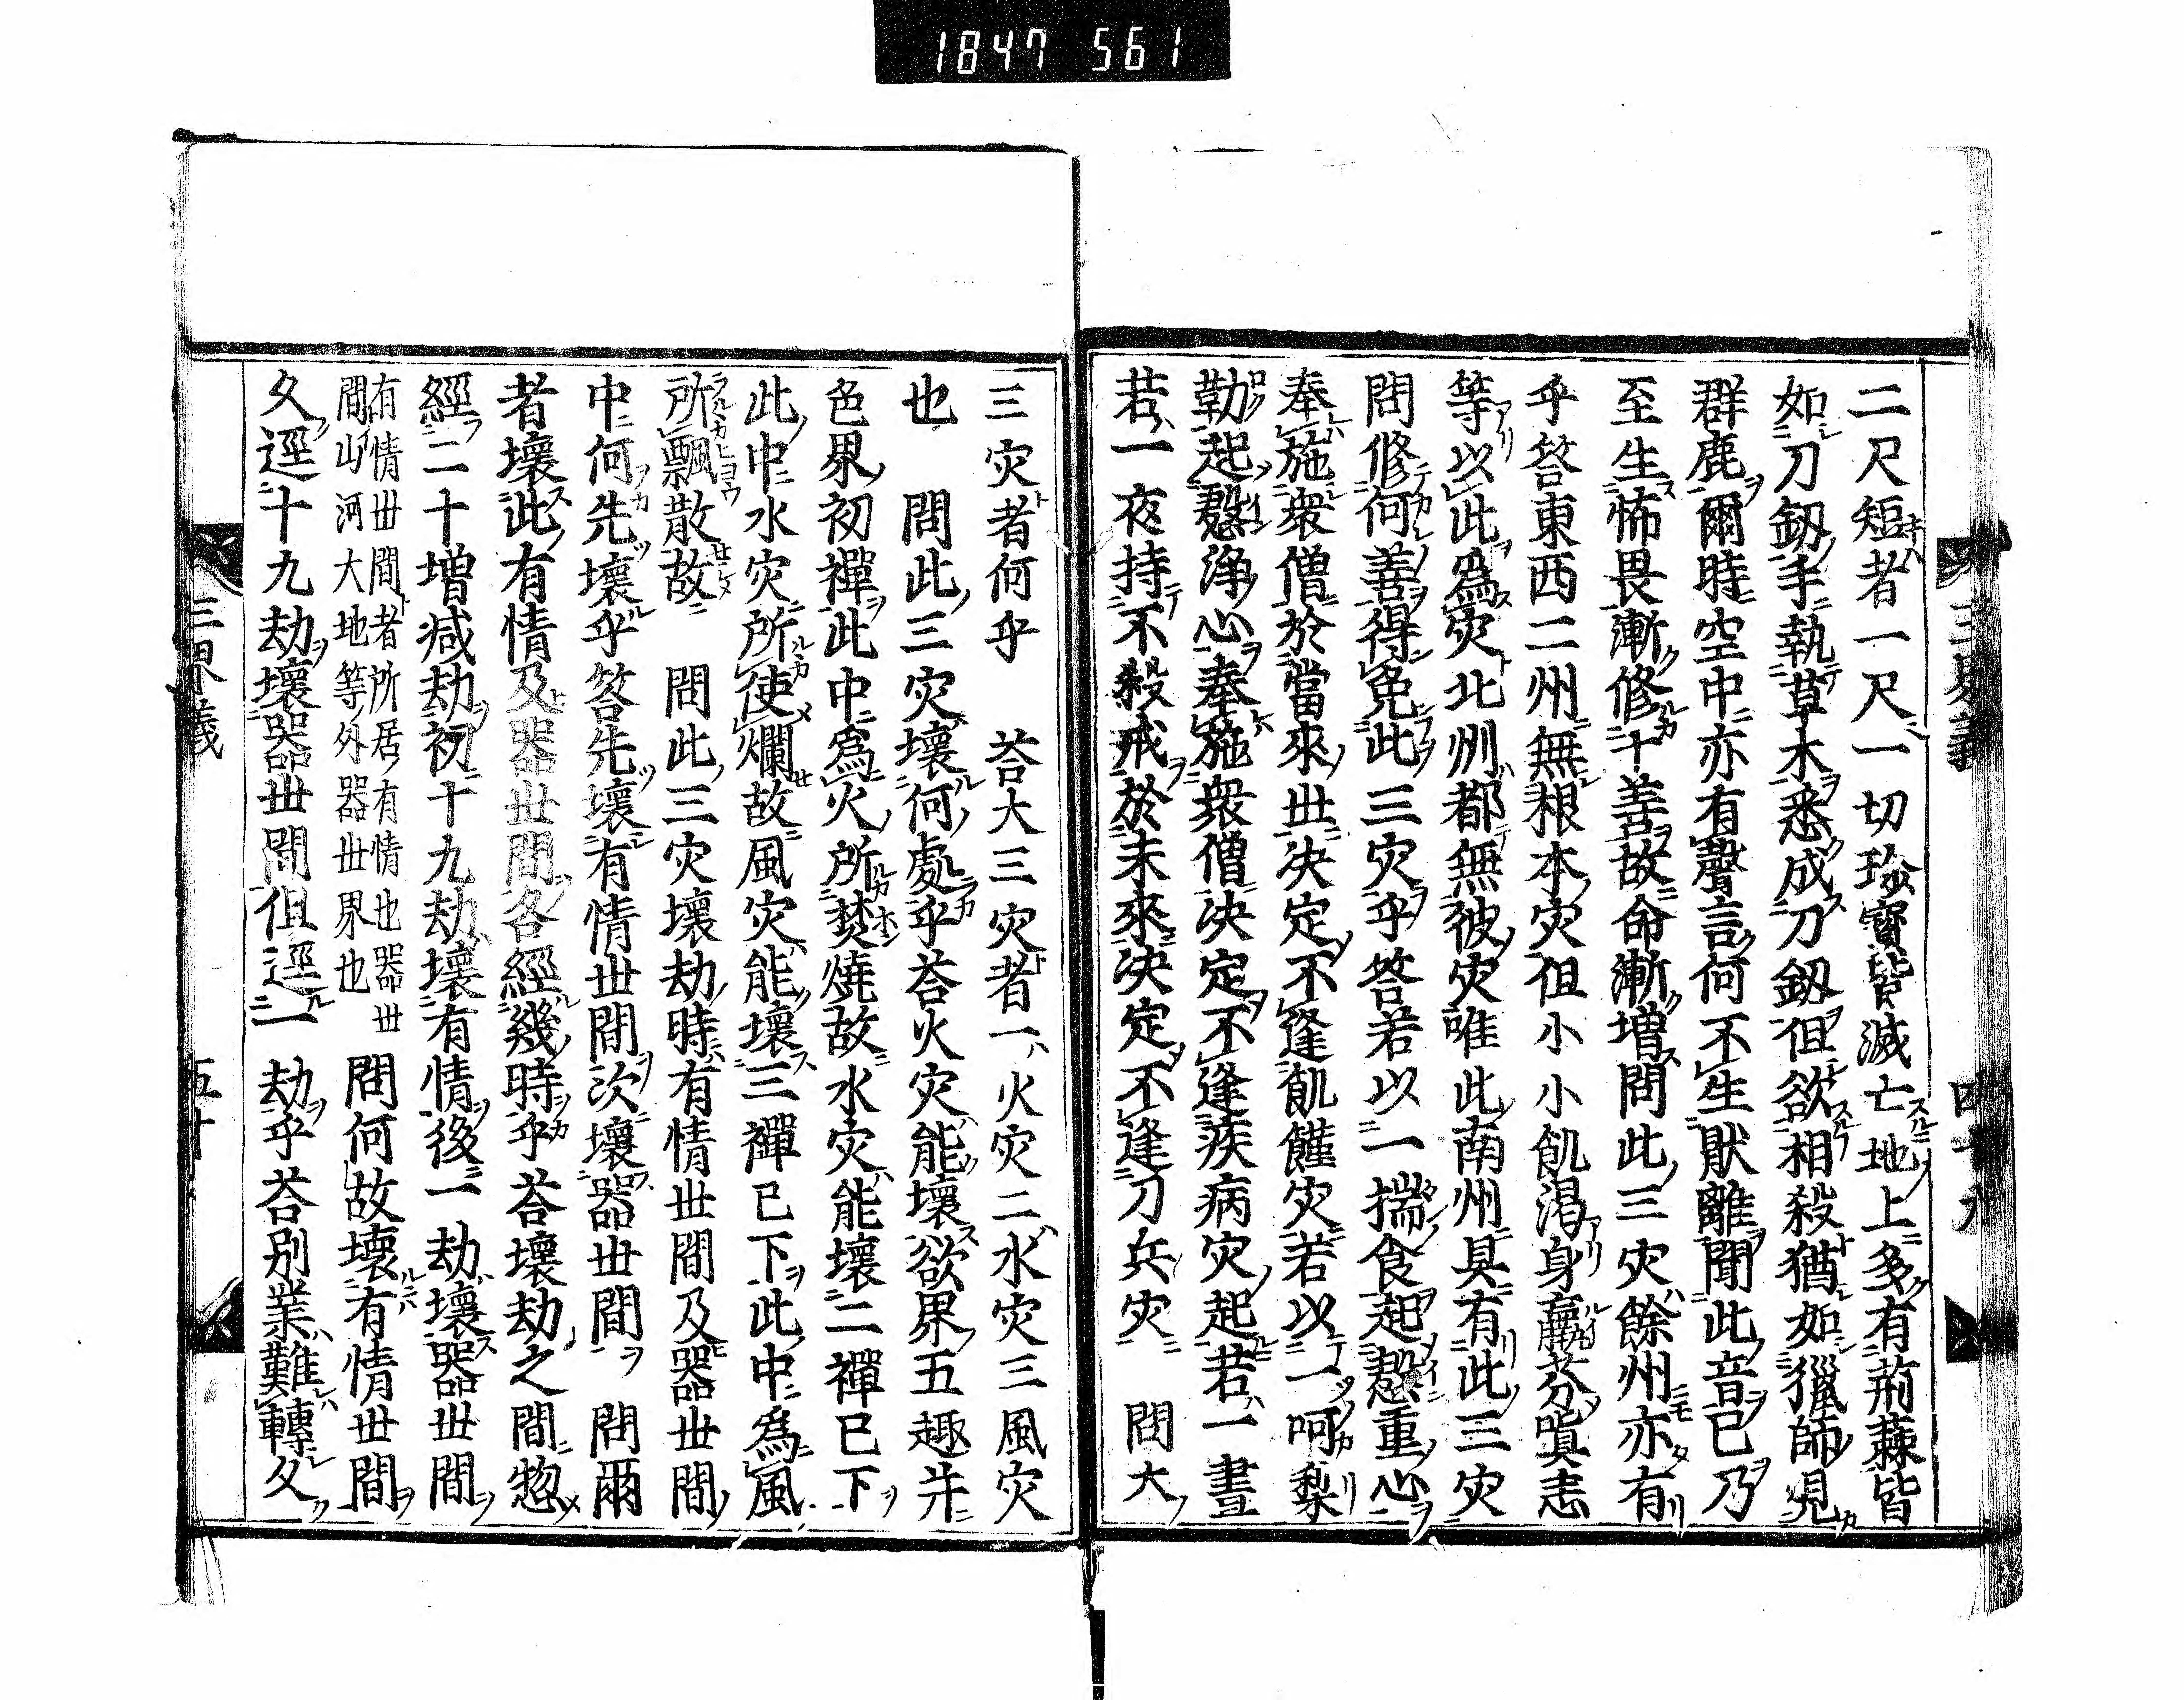 1847 561
二尺短者一尺一切珍寶皆滅亡地上多有荊蕀皆
如刀釼手執草木悉成刀釼但欲相殺猶如獵師見
群鹿爾時空中亦有聲言何不生猒離聞此音已乃
至生怖畏漸修十善故命漸増問此三灾餘州亦有
乎答東西二州無根本灾但小小飢渇身羸芬嗔恚
等以此爲灾北州都無彼灾唯此南州具有此三灾
問修何善得免此三灾乎答若以一揣食起慇重心
奉施衆僧於當來世决定不逢飢饉灾若以一呵梨
勒起慇淨心奉施衆僧决定不逢疾病灾起若一晝
若一夜持不殺戒於未來决定不逢刀兵灾　問大
三界義
四十九
三灾者何乎　荅大三灾者一火灾二水灾三風灾
也　問此三灾壞何處乎荅火灾能壞欲界五趣并
色界初禪此中爲火所焚燒故水灾能壞二禪已下
此中水灾所使爛故風灾能壞三禪已下此中爲風
所飄散故　問此三灾壞劫時有情世間及器世間
中何先壞乎答先壞有情世間次壞器世間　問爾
者壞此有情及器世間各經幾時乎荅壞劫之間惣
經二十増減劫初十九劫壞有情後一劫壞器世間
有情世間者所居有情也器世
間山河大地等外器世界也　問何故壞有情世間
久逕十九劫壞器世間但逕一劫乎荅別業難轉久
三界義
五十